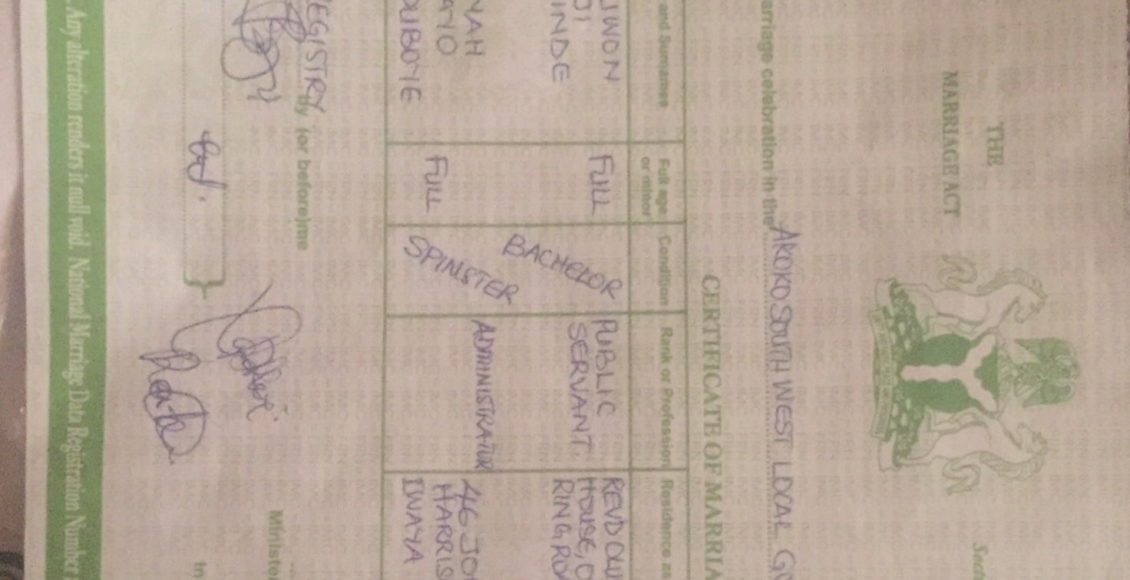 THE
MARRIAGE ACT
Sect
CERTIFICATE OF MARRIA
arriage celebration in the AKOKO SOUTH WEST LOCAL GO
and Surnames
Full age or minor
Condition
Rank or Profession
Residence
UWON
INDE
FULL
BACHELOR
PUBLIC
SERVANT.
REVD OLU
HOUSE, O
RING RO
NAH
AYO
OLIBOYE
FULL
SPINSTER
ADMINISTRATOR
46 JO
HARRIS
IWAYA
REGISTRY
by (or before) me
Minister
In
Any alteration renders it null void. National Marriage Data Registration Number